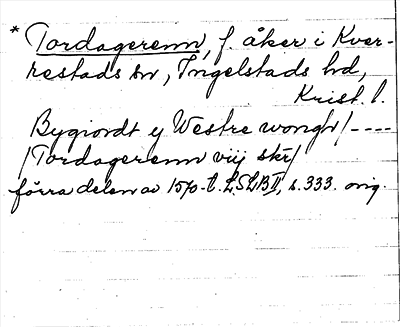 * Tordagerenn, f. åker i Kver-
restads sn, Ingelstads hd,
Krist. l.
Bygiordt y Westre wongh/----
/Tordagerenn viij skr/
förra delen av 1570-t. LSLB II, s. 333. orig.